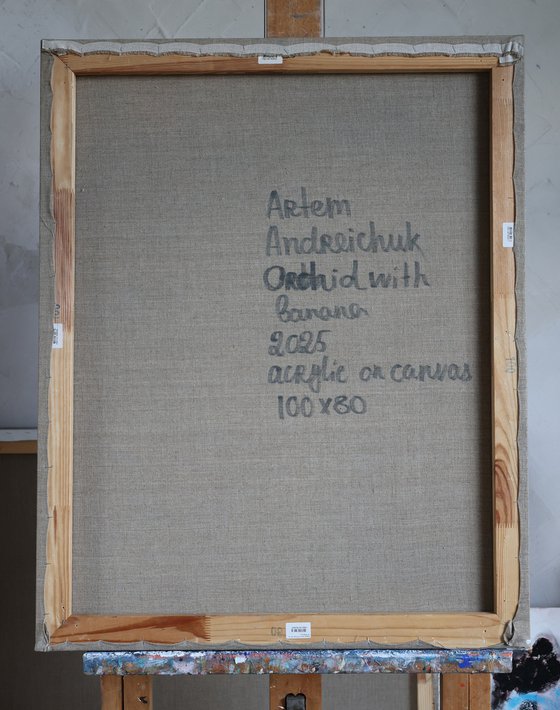 Artem
Andreichuk
Orchid with
banana
2025
acrylic on canvas
100x80